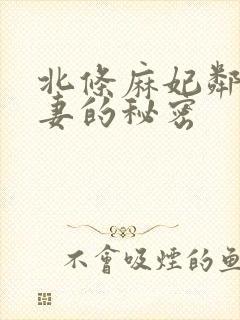 北條麻妃鄰
妻的秘密
不會吸煙的魚